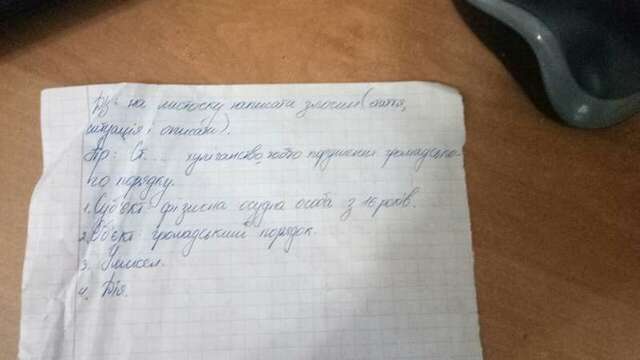 ДЗ: на листочку написати злочин (стаття,
ситуація і описати).
Пр: Ст.... хуліганство, тобто порушення громадсько-
го порядку.
1. Суб'єкт: фізисна осудла особа з 16 років.
2. Об'єкт: громадський порядок.
3. Умисел.
4. Дія.